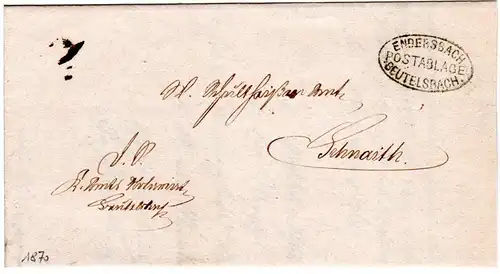 ENDERSBACH
POSTABLAGE
BEUTELSBACH.
Schultheißen Amt
Schnaith.
Beutelsbach
1870